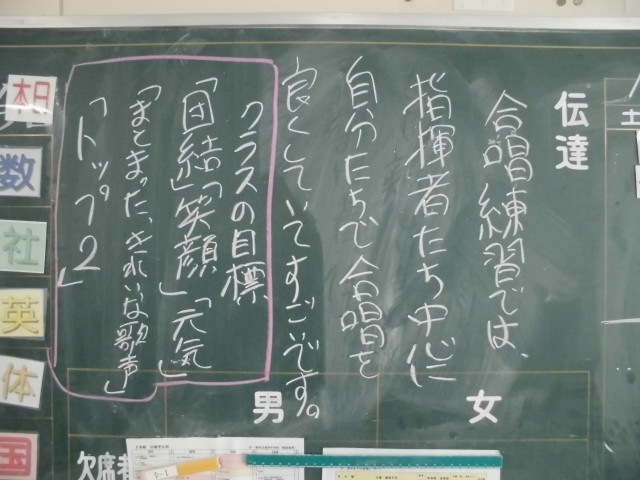 伝達
合唱練習では、
指揮者たち中心に
自分たちで合唱を
良くしていてすごいです。
クラスの目標
「団結」「笑顔」「元気」
「まとまった、きれいな歌声」
「トップ2」
本日
数
社
英
体
国
土
女
男
欠席者